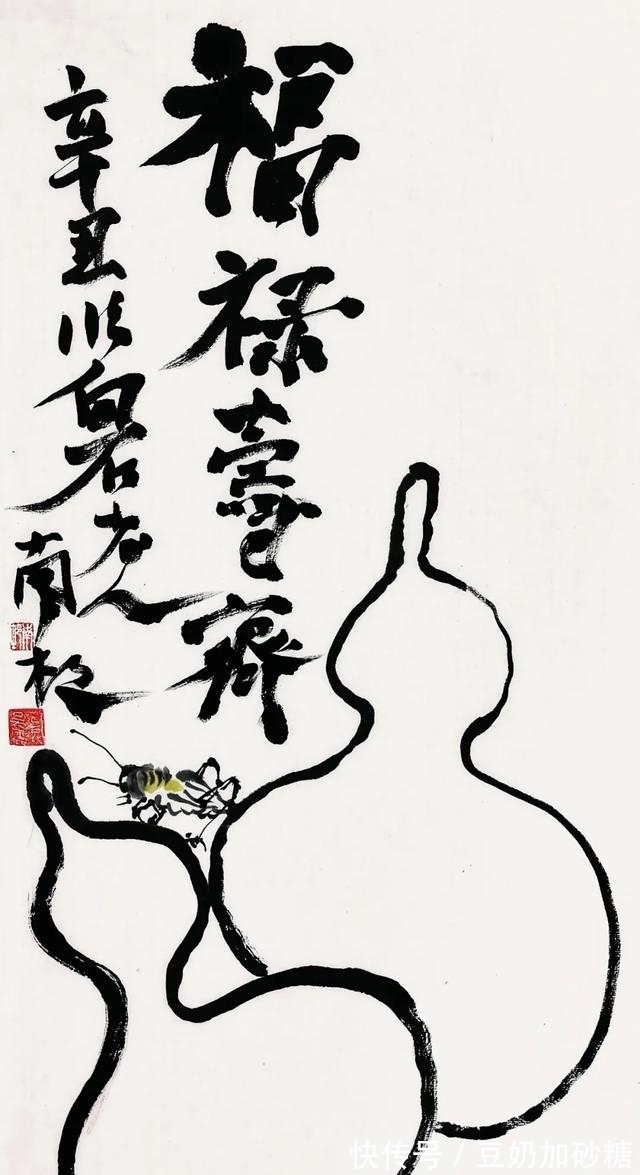 福禄壽齊
辛丑 白石老人
南
快传号 / 豆奶加砂糖